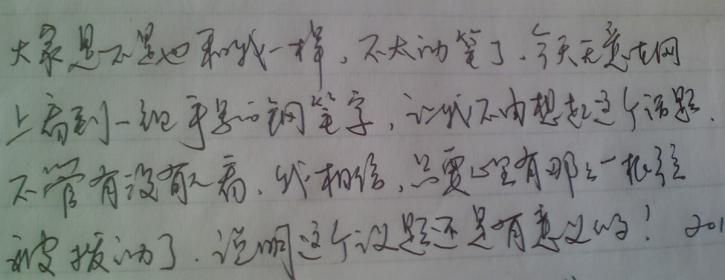 大家是不是也和我一样，不大动笔了．今天无意在网
上看到一组手写的钢笔字，让我不由想起这个话题．
不管有没有人看，我相信，只要心里有那么一根弦
被拨动了．说明这个议题还是有意义的！ 201